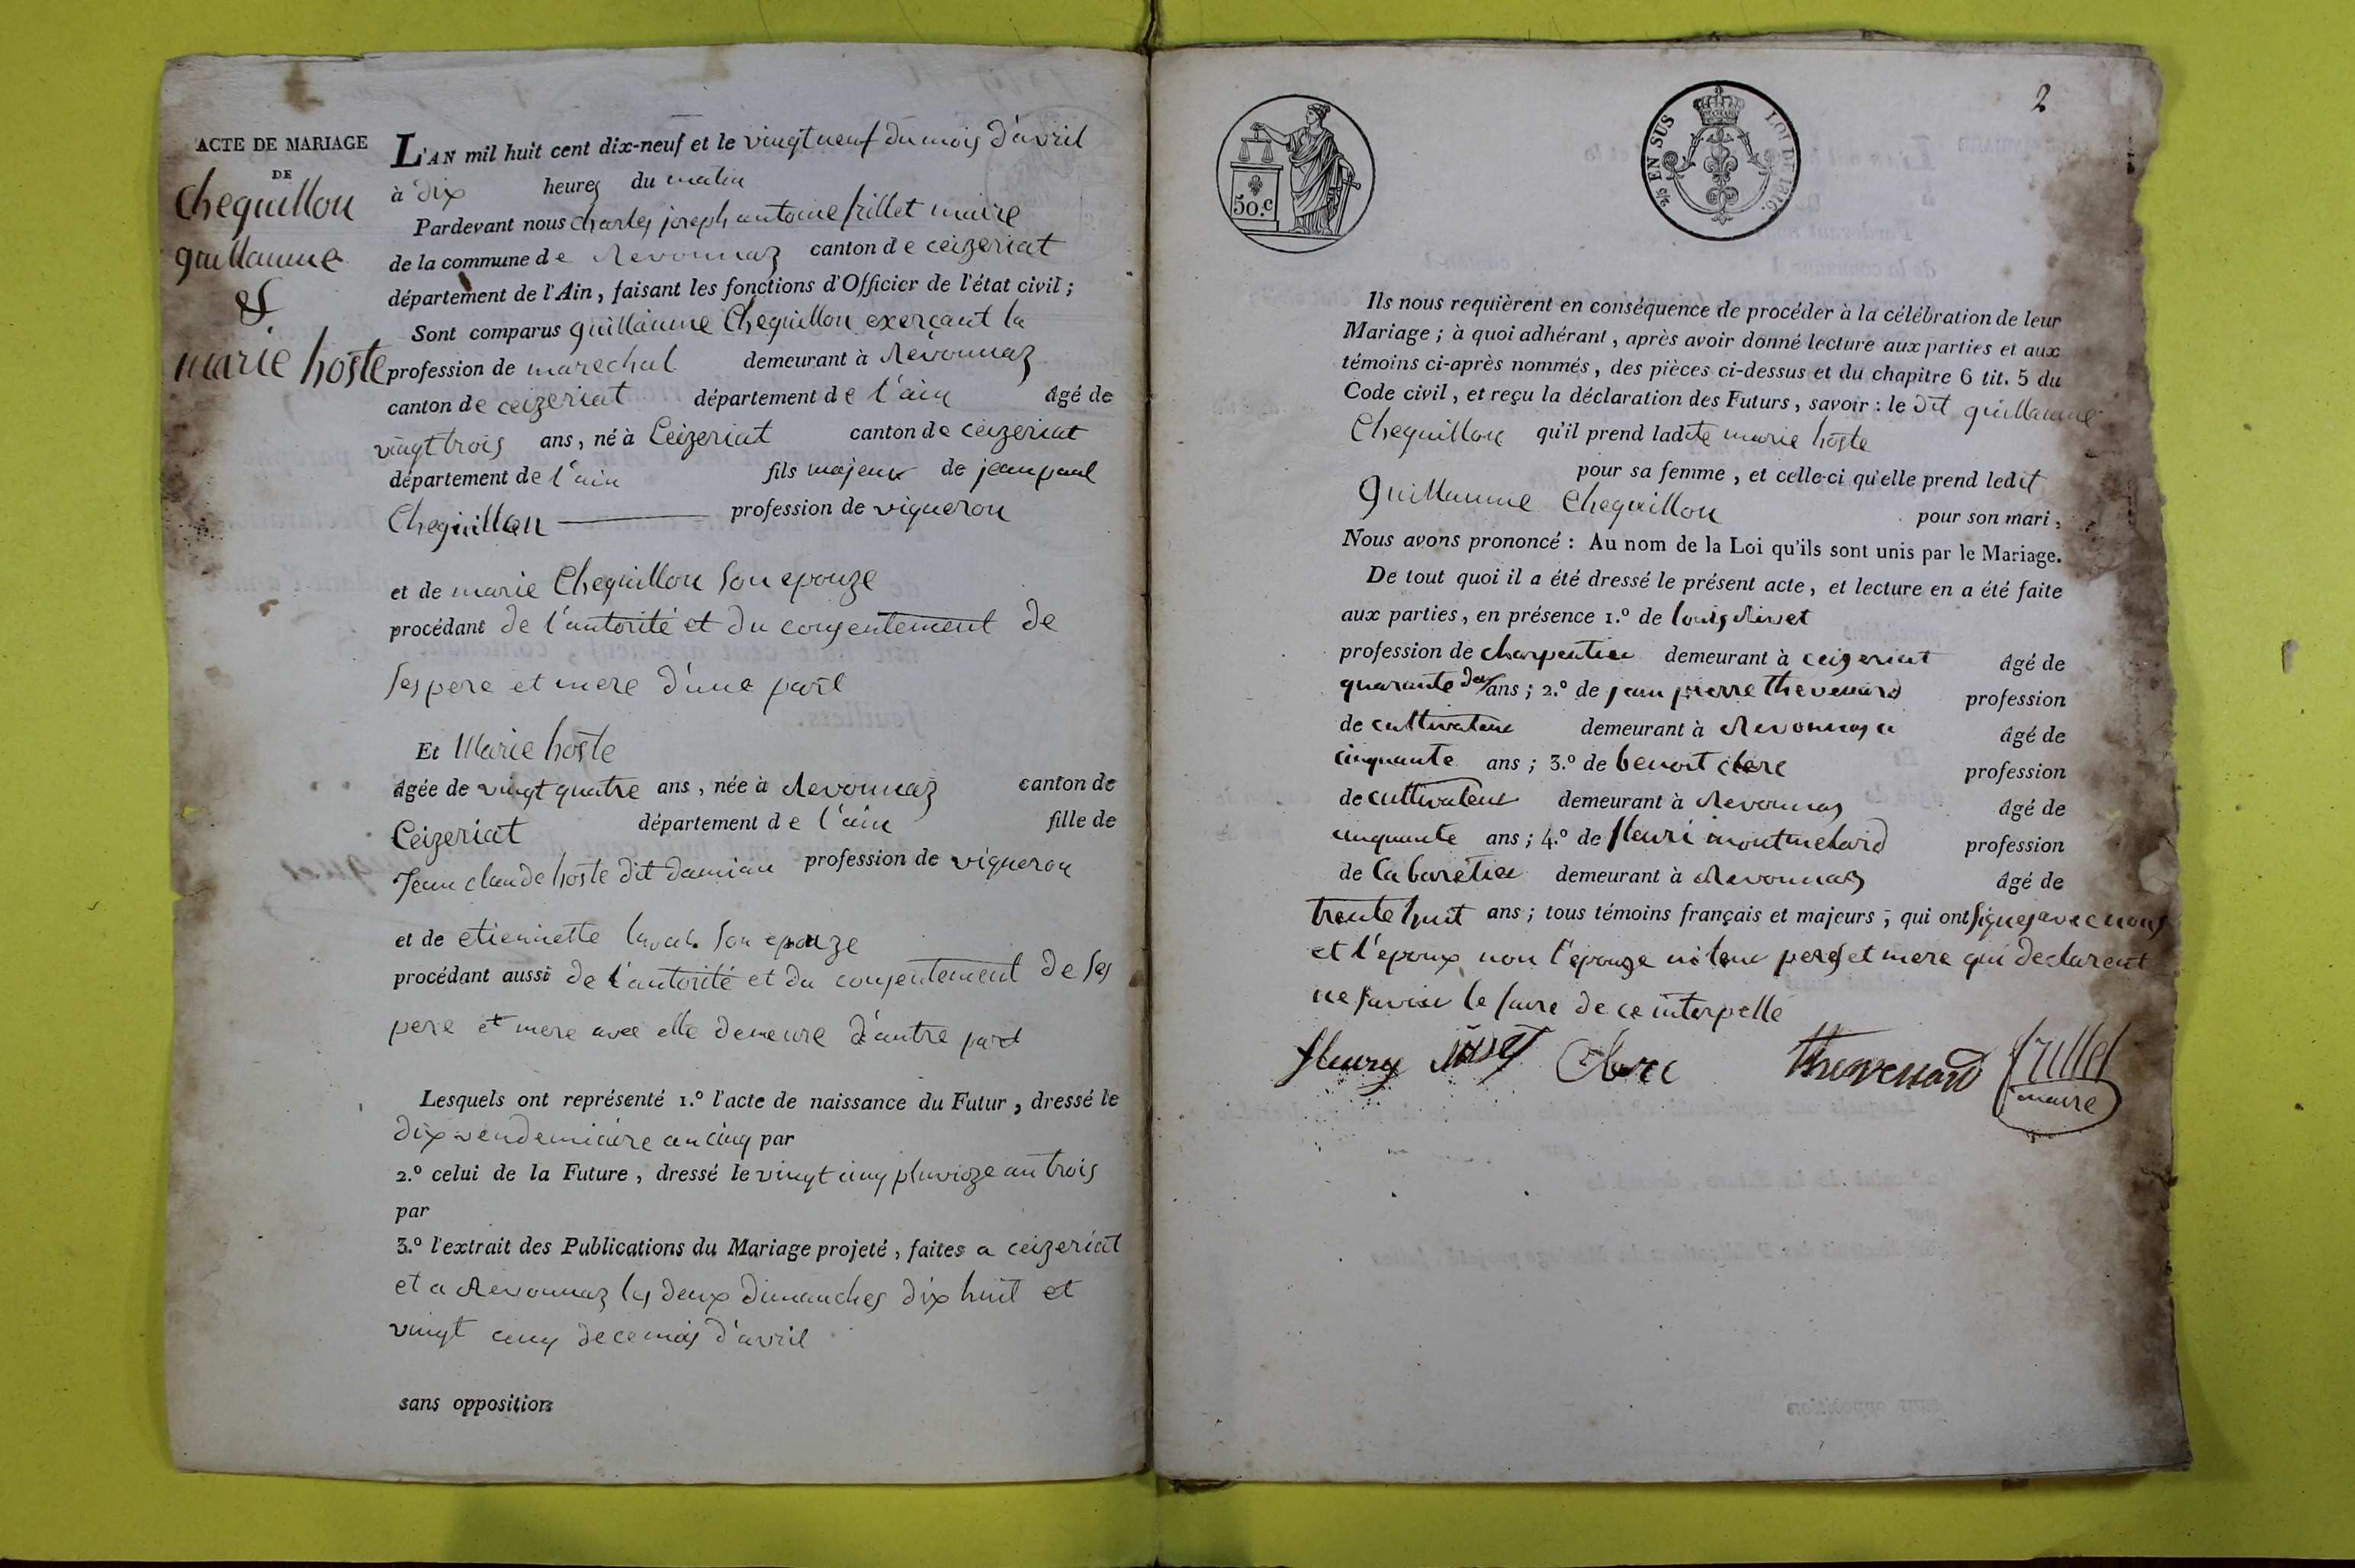 ACTE DE MARIAGE
DE
Chequillon
guillaume
&
marie hoste
L'AN mil huit cent dix-neuf et le vingt neuf du mois d'avril
à dix heures du matin
Pardevant nous charles joseph antoine frillet maire
de la commune de Revonnaz canton de ceizeriat
département de l'Ain, faisant les fonctions d'Officier de l'état civil ;
Sont comparus guillaume Chequillon exerçant la
profession de marechal demeurant à Revonnaz
canton de ceizeriat département de l'ain âgé de
vingt trois ans, né à Ceizeriat canton de ceizeriat
département de l'ain fils majeur de jean paul
Chequillon profession de vigneron
et de marie Chequillon son epouze
procédant de l'autorité et du consentement de
ses pere et mere d'une part
Et Marie hoste
âgée de vingt quatre ans, née à Revonnaz canton de
Ceizeriat département de l'ain fille de
Jean claude hoste dit damian profession de vigneron
et de etiennette son epouze
procédant aussi de l'autorité et du consentement de ses
pere et mere avec elle demeure d'autre part
Lesquels ont représenté 1.º l'acte de naissance du Futur, dressé le
dix vendemiaire an cinq par
2.º celui de la Future, dressé le vingt cinq pluvioze an trois
par
3.º l'extrait des Publications du Mariage projeté, faites a ceizeriat
et a Revonnaz les deux dimanches dix huit et
vingt cinq de ce mois d'avril
sans opposition
2
50.c
2/5 EN SUS LOI DE 1816.
Ils nous requièrent en conséquence de procéder à la célébration de leur
Mariage ; à quoi adhérant, après avoir donné lecture aux parties et aux
témoins ci-après nommés, des pièces ci-dessus et du chapitre 6 tit. 5 du
Code civil, et reçu la déclaration des Futurs, savoir : le dit guillaume
Chequillon qu'il prend ladite marie hoste
pour sa femme, et celle-ci qu'elle prend ledit
guillaume Chequillon pour son mari,
Nous avons prononcé : Au nom de la Loi qu'ils sont unis par le Mariage.
De tout quoi il a été dressé le présent acte, et lecture en a été faite
aux parties, en présence 1.º de louis Rivet
profession de charpentier demeurant à ceizeriat âgé de
quarante deux ans ; 2.º de jean pierre thevenard profession
de cultivateur demeurant à Revonnaz âgé de
cinquante ans ; 3.º de benoit clerc profession
de cultivateur demeurant à Revonnaz âgé de
cinquante ans ; 4.º de fleuri montmetard profession
de Cabaretier demeurant à Revonnaz âgé de
trente huit ans ; tous témoins français et majeurs, qui ont signes avec nous
et l'epoux non l'epouze ni leur peres et mere qui declarent
ne savoir le faire de ce interpellé
fleury Rivet Clerc thevenard frillet
maire